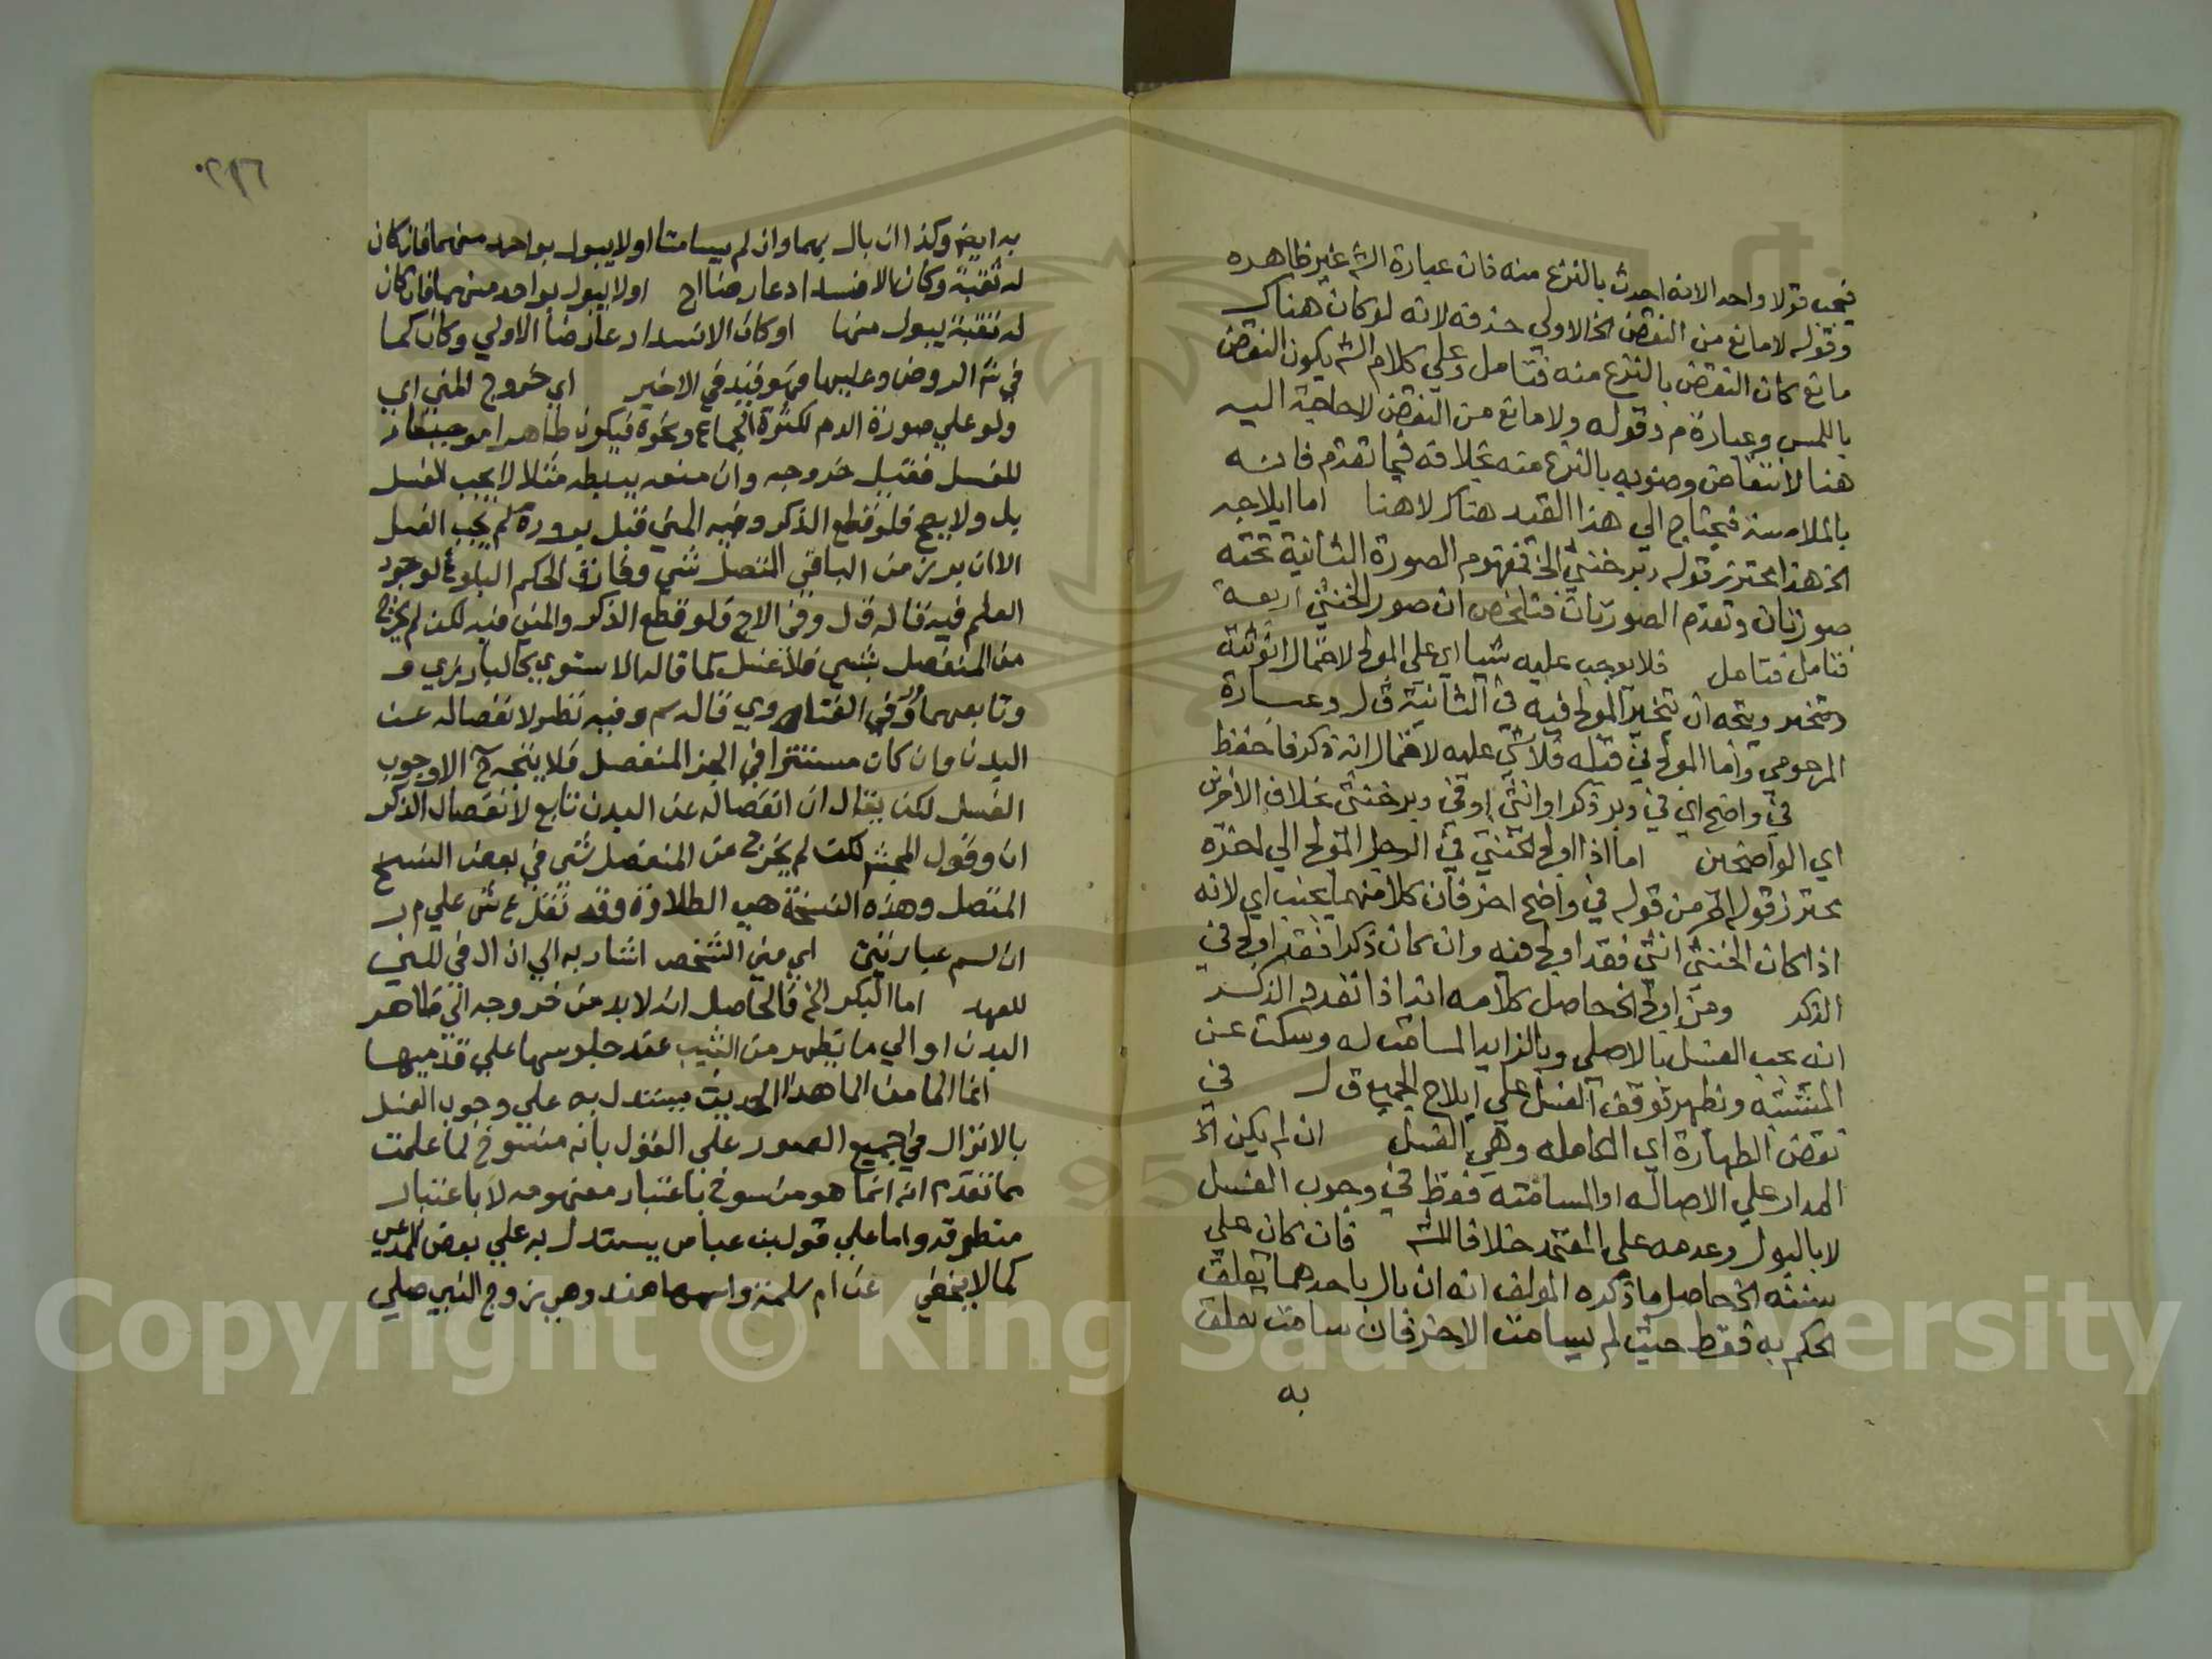 فيجب قولا واحد الانه احدث بالنزع منه فان عبارة الش غير ظاهره
وقوله لا مانع من النقض الخ الاولى حذفه لانه لو كان هناك
مانع كان النقض بالنزع منه فتامل وعلي كلام الش يكون النقض
باللمس وعبارة م د قوله ولا مانع من النقض لا حاجة اليه
هنا لانتقاض وضويه بالنزع منه بخلافه فيما تقدم فانه
بالملامسة فيحتاج الي هذا القيد هناك لا هنا اما ايلاجه
الخ هذا محترز قوله دبر خنثي الخ فمفهوم الصورة الثانية تحته
صورتان وتقدم الصورتان فتلخص ان صور الخنثي اربعة
فتامل فتامل فلا يوجب عليه شيا اي على المولج لاحتمال انوثته
وتخير ويتجه ان تخير المولج فيه في الثانية ق ل وعبارة
المرحومي واما المولج في قبله فلا شي عليه لاحتمال انه ذكر فاحفظ
في واضح اي في دبر ذكر او انثي او في دبر خنثي بخلاف الاخرين
اي الواضحين اما اذا اولج الخنثي في الرجل المولج الي اخره
محترز قوله اخر من قوله في واضح اخر فان كلا منهما يجنب اي لانه
اذا كان الخنثي انثي فقد اولج فيه وان كان ذكرا فقد اولج في
الذكر ومن اولج الخ حاصل كلامه انه اذا تعدد الذكر
انه يجب الغسل بالاصلي وبالزايد المسامت له وسكت عن
المشتبه ويظهر توقف الغسل علي ايلاج الجميع ق ل في
نقض الطهارة اي الكامله وهي الغسل ان لم يكن الخ
المدار علي الاصاله او المسامتة فقط في وجوب الغسل
لا بالبول وعدمه علي المعتمد خلافا للش فان كان علي
سننه الخ حاصل ما ذكره المولف انه ان بال باحدهما يتعلق
الحكم به فقط حيث لم يسامت الاخر فان سامت تعلق
به
به ايض وكذا ان بال بهما وان لم يسامتا اولا يبول بواحد منهما فان كان
له ثقبة وكان الانسداد عارضا اح اولا يبول بواحد منهما فان كان
له ثقبة يبول منها او كان الانسداد عارضا الاولي وكان كما
في ش الروض وعليها فهو قيد في الاخير اي خروج المني اي
ولو علي صورة الدم لكثرة الجماع ونحوه فيكون طاهرا موجبا
للغسل فقبل خروجه وان منعه بربطه مثلا لا يجب الغسل
بل ولا يصح فلو قطع الذكر وفيه المني قبل بروزه لم يجب الغسل
الا ان برز من الباقي المتصل شي وفارق الحكم البلوغ لوجود
العلم فيه قاله ق ل وفي الاج فلو قطع الذكر والمني فيه لكن لم يخرج
من المنفصل شي فلا غسل كما قاله الاسنوي كالبارزي و
وتابعهما في الفتاوي قاله سم وفيه نظر لانفصاله عن
البدن وان كان مستترا في الجز المنفصل فلا يتجه ح الا وجوب
الغسل لكن يقال ان انفصاله عن البدن تابع لانفصال الذكر
اه وقول المحشي لكن لم يخرج من المنفصل شي في بعض النسخ
المتصل وهذه النسخة هي الطلاوة وقد نقل ع ش علي م ر
ان لسم عبارتين اي مني الشخص اشار به الي ان ال في المني
للعهد اما البكر الخ فالحاصل انه لا بد من خروجه الي ظاهر
البدن او الي ما يظهر من الثيب عند جلوسها علي قدميها
انما الما من الما هذا الحديث يستدل به علي وجوب الغسل
بالانزال في جميع الصور علي القول بانه منسوخ لما علمت
مما تقدم انه انما هو منسوخ باعتبار مفهومه لا باعتبار
منطوقه واما علي قول بن عباس يستدل به علي بعض المدعي
كما لا يخفي عن ام سلمة واسمها هند وهي زوج النبي صلي
Copyright © King Saud University